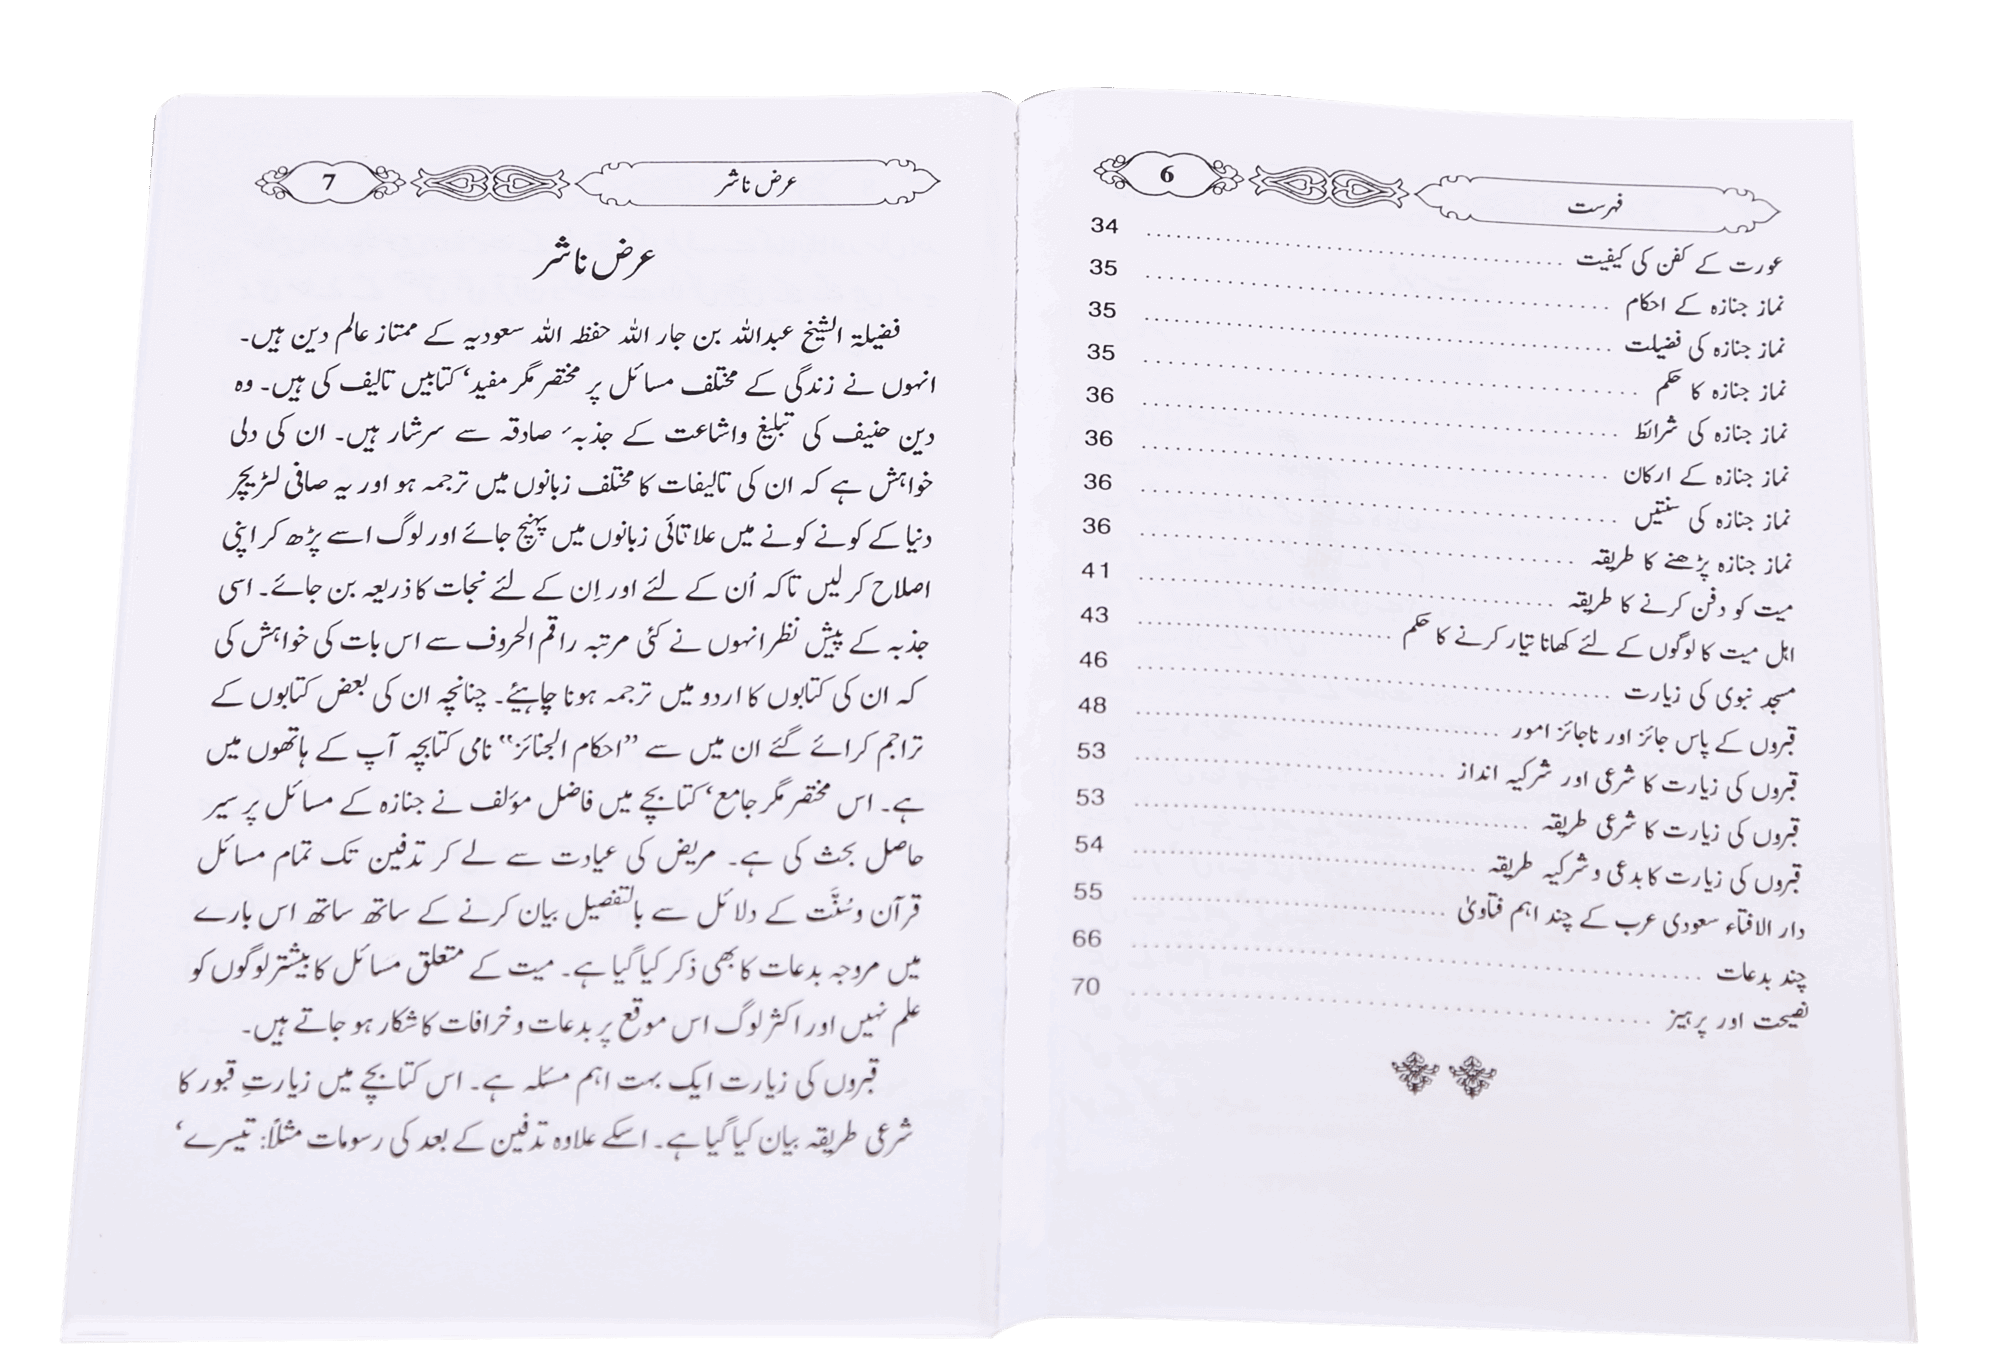 فہرست 6
عورت کے کفن کی کیفیت 34
نماز جنازہ کے احکام 35
نماز جنازہ کی فضیلت 35
نماز جنازہ کا حکم 35
نماز جنازہ کی شرائط 36
نماز جنازہ کے ارکان 36
نماز جنازہ کی سنتیں 36
نماز جنازہ پڑھنے کا طریقہ 36
میت کو دفن کرنے کا طریقہ 41
اہل میت کا لوگوں کے لئے کھانا تیار کرنے کا حکم 43
مسجد نبوی کی زیارت 46
قبروں کے پاس جائز اور ناجائز امور 48
قبروں کی زیارت کا شرعی اور شرکیہ انداز 53
قبروں کی زیارت کا شرعی طریقہ 53
قبروں کی زیارت کا بدعی و شرکیہ طریقہ 54
دار الافتاء سعودی عرب کے چند اہم فتاویٰ 55
چند بدعات 66
نصیحت اور پرہیز 70
عرض ناشر 7
عرض ناشر
فضیلۃ الشیخ عبداللہ بن جار اللہ حفظہ اللہ سعودیہ کے ممتاز عالم دین ہیں۔
انہوں نے زندگی کے مختلف مسائل پر مختصر مگر مفید‘ کتابیں تالیف کی ہیں۔ وہ
دین حنیف کی تبلیغ واشاعت کے جذبہٴ صادقہ سے سرشار ہیں۔ ان کی دلی
خواہش ہے کہ ان کی تالیفات کا مختلف زبانوں میں ترجمہ ہو اور یہ صافی لٹریچر
دنیا کے کونے کونے میں علاقائی زبانوں میں پہنچ جائے اور لوگ اسے پڑھ کر اپنی
اصلاح کر لیں تاکہ اُن کے لئے اور اِن کے لئے نجات کا ذریعہ بن جائے۔ اسی
جذبہ کے پیش نظر انہوں نے کئی مرتبہ راقم الحروف سے اس بات کی خواہش کی
کہ ان کی کتابوں کا اردو میں ترجمہ ہونا چاہیئے۔ چنانچہ ان کی بعض کتابوں کے
تراجم کرائے گئے ان میں سے ”احکام الجنائز“ نامی کتابچہ آپ کے ہاتھوں میں
ہے۔ اس مختصر مگر جامع‘ کتابچے میں فاضل مؤلف نے جنازہ کے مسائل پر سیر
حاصل بحث کی ہے۔ مریض کی عیادت سے لے کر تدفین تک تمام مسائل
قرآن وسُنَّت کے دلائل سے بالتفصیل بیان کرنے کے ساتھ ساتھ اس بارے
میں مروجہ بدعات کا بھی ذکر کیا گیا ہے۔ میت کے متعلق مسائل کا بیشتر لوگوں کو
علم نہیں اور اکثر لوگ اس موقع پر بدعات و خرافات کا شکار ہو جاتے ہیں۔
قبروں کی زیارت ایک بہت اہم مسئلہ ہے۔ اس کتابچے میں زیارتِ قبور کا
شرعی طریقہ بیان کیا گیا ہے۔ اسکے علاوہ تدفین کے بعد کی رسومات مثلاً: تیسرے‘